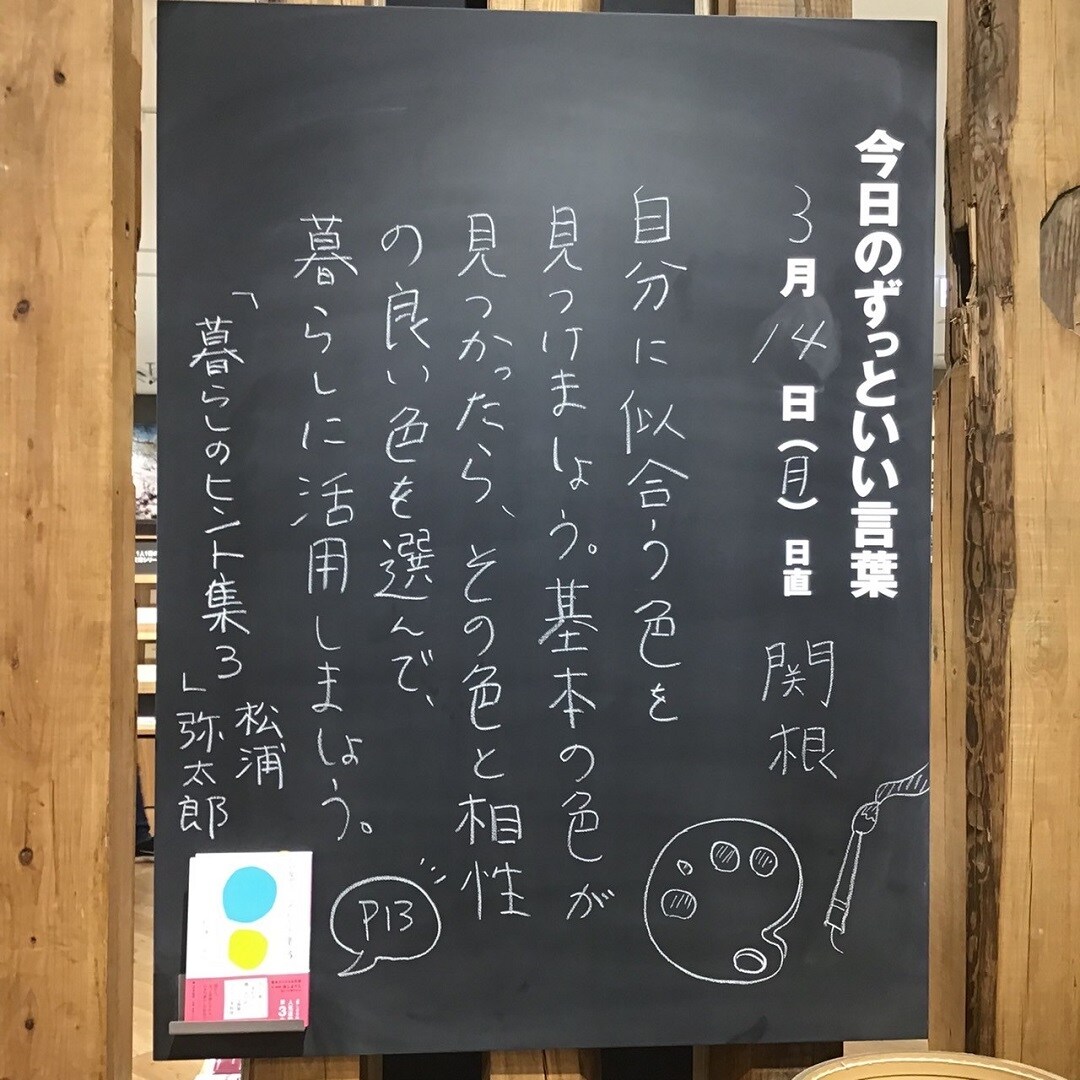 今日のずっといい言葉
3月14日(月) 日直 関根
自分に似合う色を
見つけましょう。基本の色が
見つかったら、その色と相性
の良い色を選んで、
暮らしに活用しましょう。
「暮らしのヒント集3」
松浦
弥太郎
P13